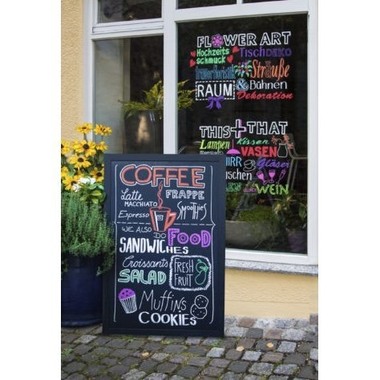 FLOWER ART
Hochzeits Tischdeko
schmuck
Trauerfloristik Sträuße
RAUM & Bühnen
Dekoration
THIS + THAT
Lampen Kissen
VASEN
Gläser
WEIN
COFFEE
Latte FRAPPE
MACCHIATO
Espresso Smoothies
WE ALSO
DO FOOD
SANDWICHES
Croissants
SALAD FRESH
FRUIT
Muffins
COOKIES